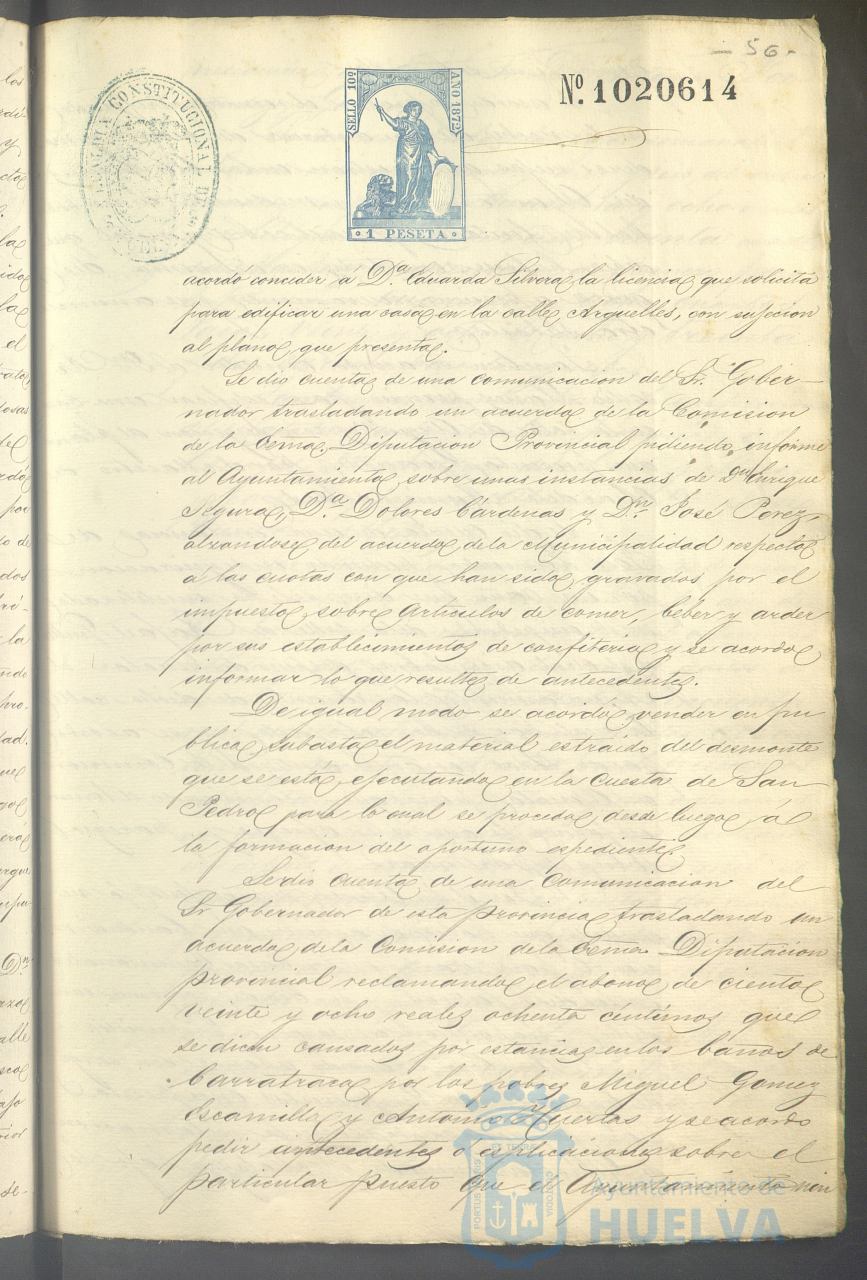 - 56 -
ALCALDIA CONSTITUCIONAL DE HUELVA
SELLO 10º
AÑO 1872
1 PESETA
Nº. 1020614
acordó conceder á D.ª Eduarda Silvera la licencia que solicita
para edificar una casa en la calle Arguelles, con sujecion
al plano que presenta.
Se dio cuenta de una comunicacion del Sr. Gober-
nador trasladando un acuerdo de la Comision
de la Ecma. Diputacion Provincial pidiendo informe
al Ayuntamiento sobre unas instancias de Dn. Enrique
D.ª Dolores Cárdenas y D.n José Perez,
alzandose del acuerdo de la Municipalidad respecto
a las cuotas con que han sido gravados por el
impuesto sobre articulos de comer, beber y arder
por sus establecimientos de confiteria y se acordo
informar lo que resulte de antecedentes.
De igual modo se acordó vender en pu
blica subasta el material estraido del desmonte
que se está ejecutando en la Cuesta de San
Pedro para lo cual se proceda desde luego á
la formacion del oportuno espediente
Se dio cuenta de una comunicacion del
Sr Gobernador de esta provincia trasladando un
acuerdo de la Comision de la Ecma. Diputacion
provincial reclamando el abono de ciento
veinte y ocho reales ochenta céntimos que
se dicen causados por estancias en los baños de
Carratraca por los pobres Miguel Gomez
Escamilla y Antonio Huertas y se acordo
pedir antecedentes ó esplicaciones sobre el
particular puesto que el Ayuntamiento nin
PORTUS MARIS ET TERRE CUSTODIA
Ayuntamiento de
HUELVA